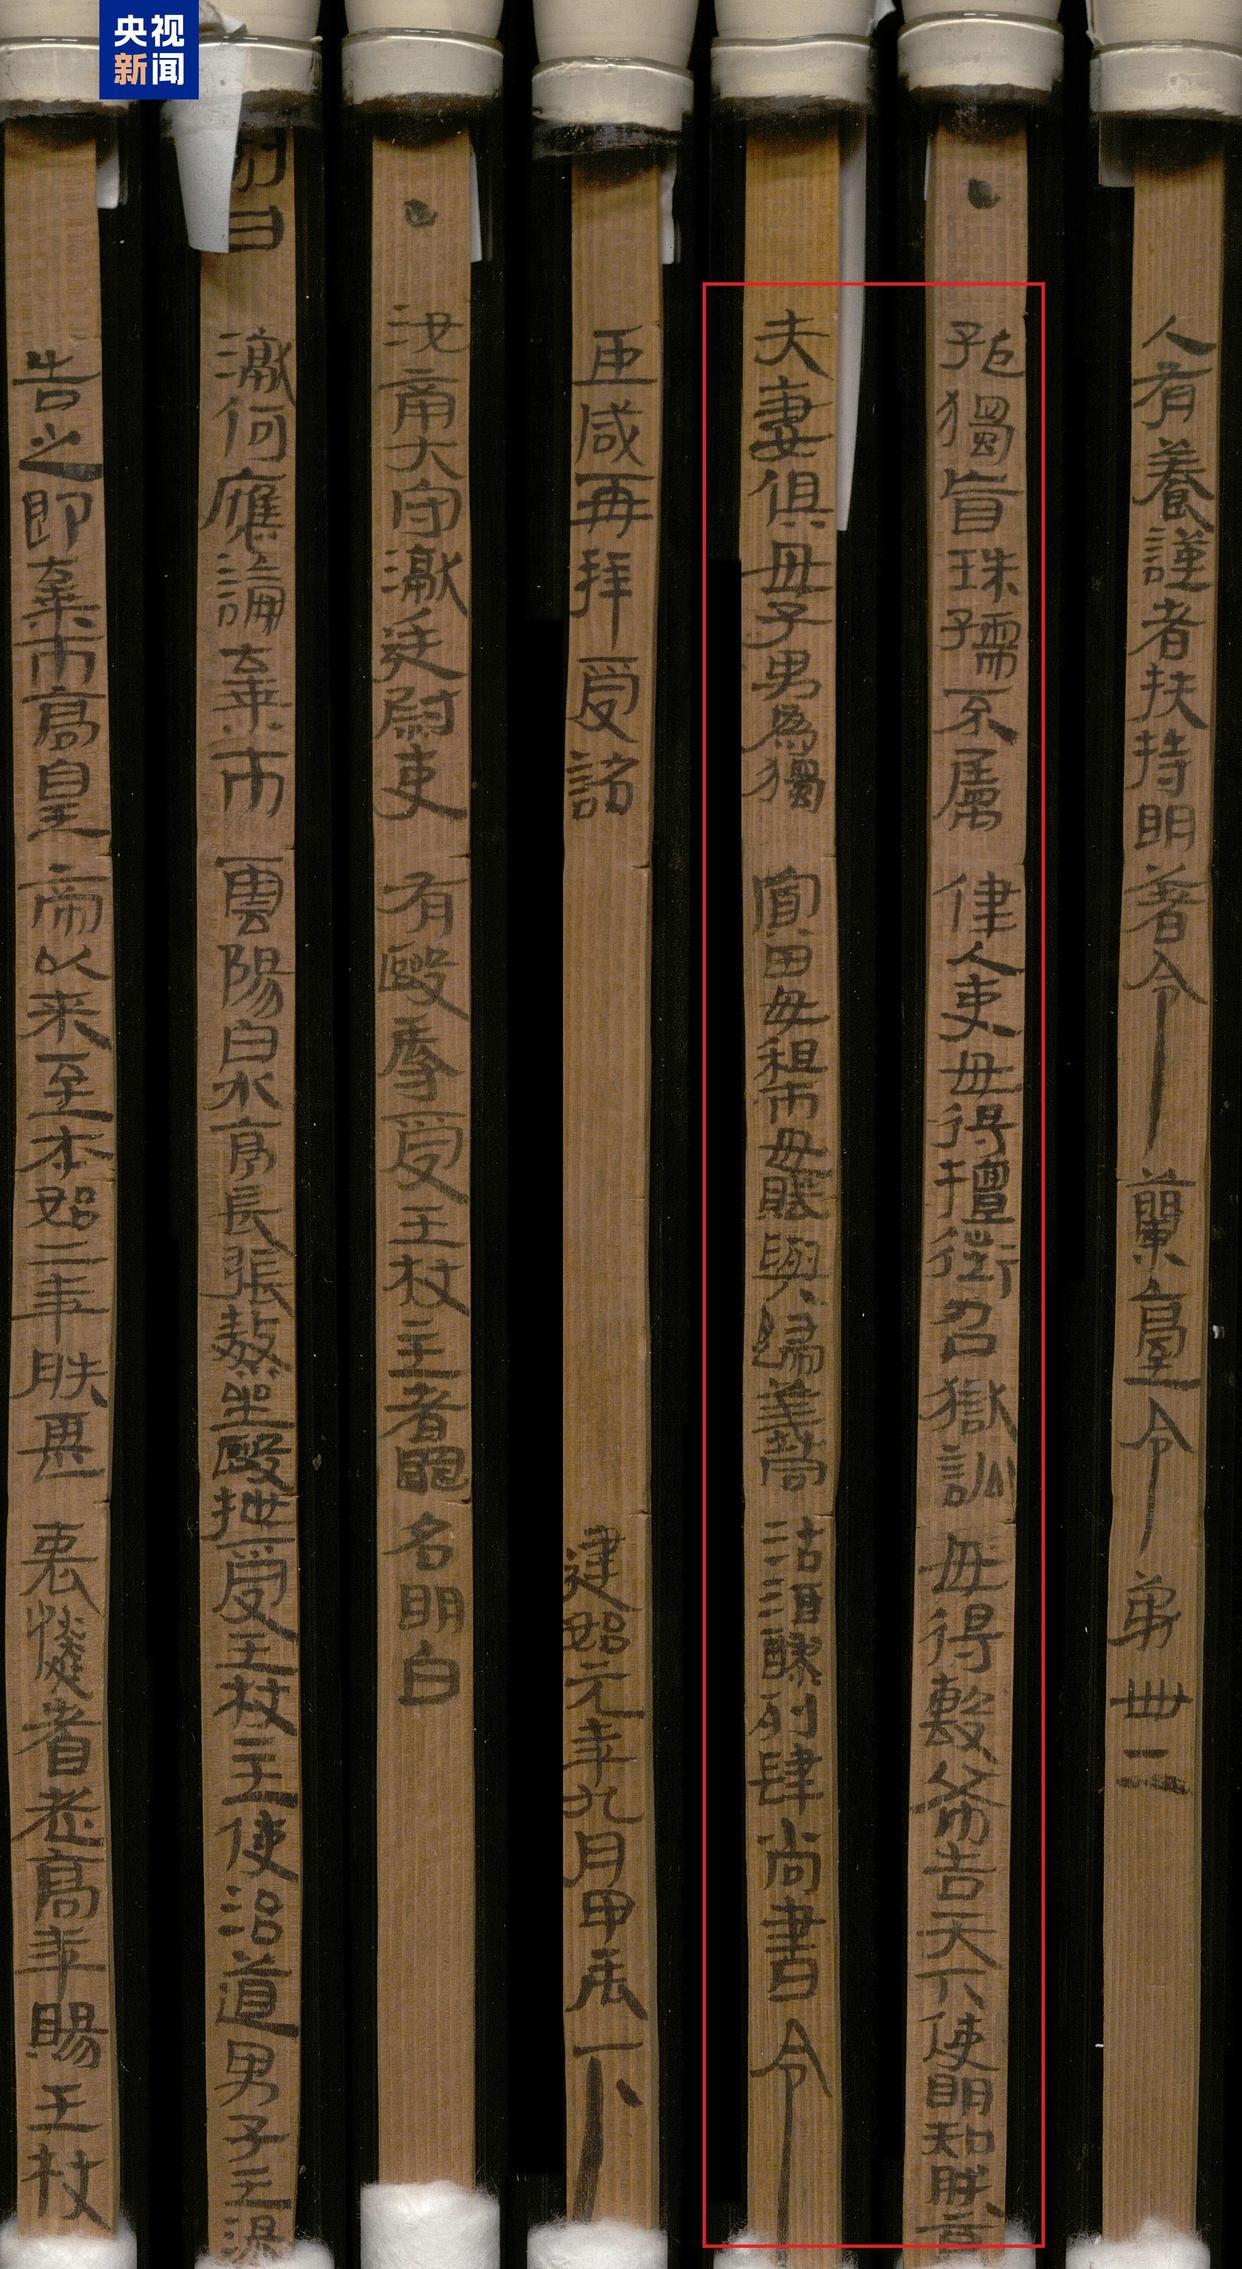 央视
新闻
人有養謹者扶持明著令蘭臺令第卌二
●孤獨盲珠孺不屬律人吏毋得擅徵召獄訟毋得毆布告天下使明知朕意
夫妻俱毋子男為獨寡田毋租市毋賦與歸義同沽酒醪列肆尚書令
臣咸再拜受詔建始元年九月甲辰下
●汝南大守讞廷尉吏有毆辱受王杖主者罪名明白
制曰讞何應論棄市雲陽白水亭長張熬坐毆抴受王杖主使治道男子王湯
告之即棄市高皇帝以來至本始二年朕甚哀憐耆老高年賜王杖